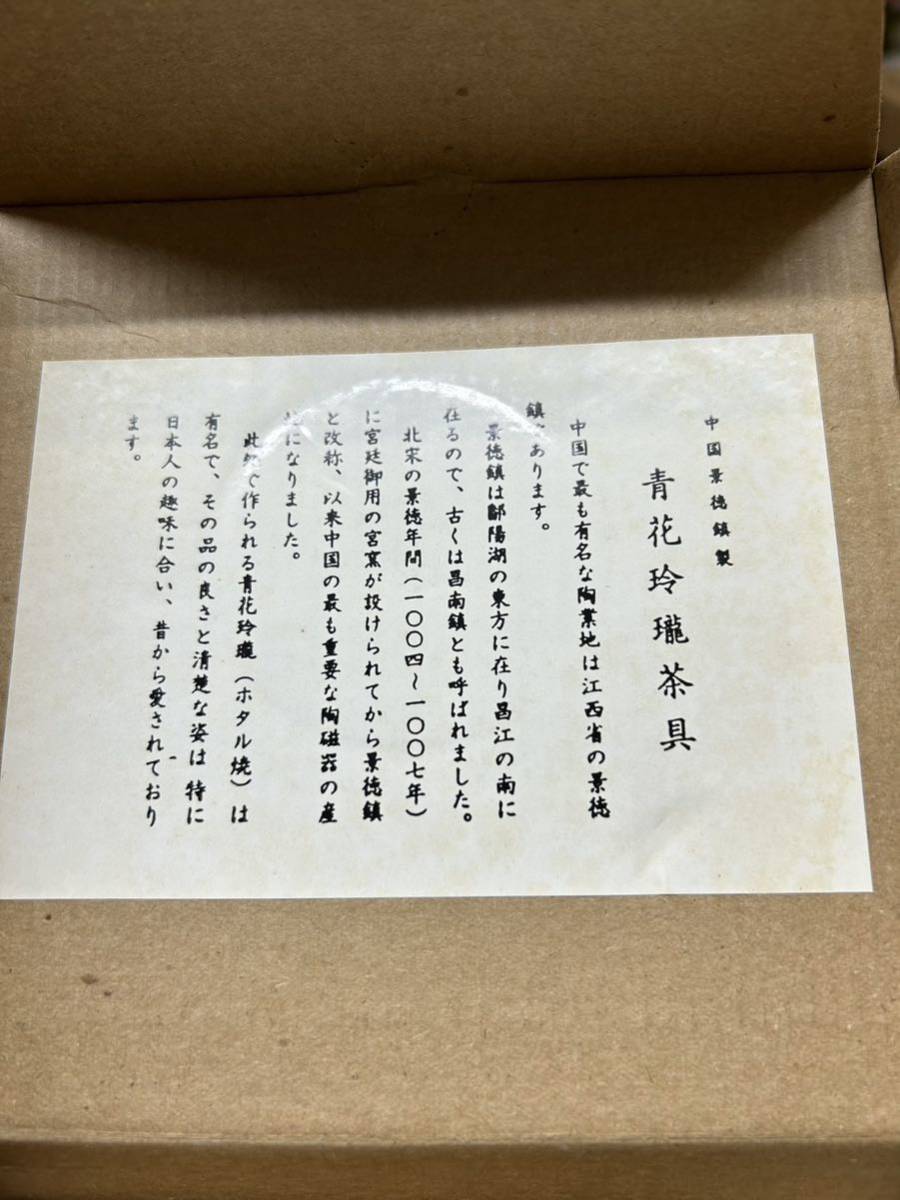 中国景徳鎮製
青花玲瓏茶具
中国で最も有名な陶業地は江西省の景徳
鎮であります。
景徳鎮は鄱陽湖の東方に在り昌江の南に
在るので、古くは昌南鎮とも呼ばれました。
北宋の景徳年間(一〇〇四〜一〇〇七年)
に宮廷御用の宮窯が設けられてから景徳鎮
と改称、以来中国の最も重要な陶磁器の産
地になりました。
此処で作られる青花玲瓏(ホタル焼)は
有名で、その品の良さと清楚な姿は特に
日本人の趣味に合い、昔から愛されており
ます。